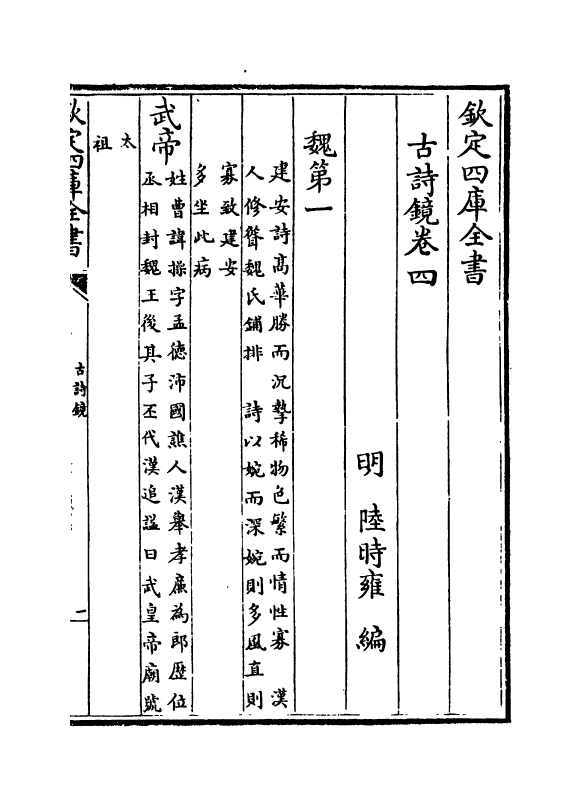 欽定四庫全書
古詩鏡卷四
明 陸時雍 編
魏第一
建安詩高華勝而沉摯稀物色繁而情性寡 漢
人修聲魏氏鋪排 詩以婉而深婉則多風直則
寡致建安
多坐此病
武帝
姓曹諱操字孟德沛國譙人漢舉孝廉為郎歷位
丞相封魏王後其子丕代漢追諡曰武皇帝廟號
太
祖
欽定四庫全書
古詩鏡